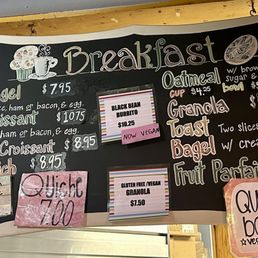 Breakfast
gel $7.95
e, ham or bacon, & egg
issant $10.75
ham or bacon, & egg
Croissant $8.95
ich $8.95
Quiche
7.00
BLACK BEAN
BURRITO
$10.25
NOW VEGAN
GLUTEN FREE/VEGAN
GRANOLA
$7.50
Oatmeal w/ brow
sugar &
CUP $4.25 bowl $5
Granola
Toast Two slices
Bagel w/ crea
Fruit Parfai
QU
BO
VE